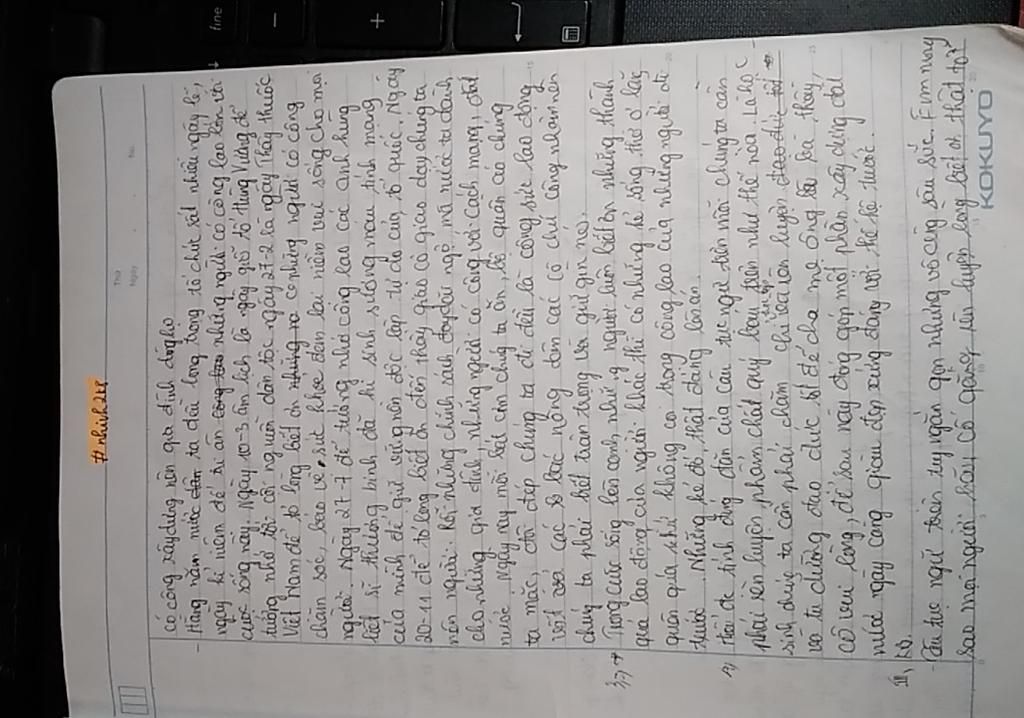 fine
# nhinh2kp
Thứ
Ngày
No.
có công xây dựng nên gia đình dòng họ
- Hàng năm nước dân ta đều long trọng tổ chức rất nhiều ngày lễ,
ngày kỉ niệm để tri ân công lao những người có công lao lớn tới
cuộc sống này. Ngày 10-3 âm lịch là ngày giỗ tổ Hùng Vương để
tưởng nhớ tới cội nguồn dân tộc ngày 27-2 là ngày Thầy thuốc
Việt Nam để tỏ lòng biết ơn những người có công
chăm sóc, bảo vệ sức khỏe đem lại niềm vui sống cho mọi
người. Ngày 27-7 để tưởng nhớ công lao các anh hùng
liệt sĩ thương binh đã hi sinh xương máu tính mạng
của mình để giữ vững nền độc lập tự do của tổ quốc. Ngày
20-11 để tỏ lòng biết ơn đến thầy giáo cô giáo dạy chúng ta
nên người. Rồi những chính sách đãi ngộ mà nước ta dành
cho những gia đình, những người có công với cách mạng, đất
nước. Ngày nay mỗi bát cơm chúng ta ăn, bộ quần áo chúng
ta mặc, đôi dép chúng ta đi đều là công sức lao động
vất vả các bác nông dân các cô chú công nhân nên
chúng ta phải biết trân trọng và giữ gìn nó.
3, + Trong cuộc sống bên cạnh những người luôn biết ơn những thành
quả lao động của người khác thì có những kẻ sống thờ ơ lãng
quên quá khứ không coi trọng công lao của những người đi
trước. Những kẻ đó thật đáng lên án.
4, Thấy được tính đúng đắn của câu tục ngữ trên mỗi chúng ta cần
phải rèn luyện phẩm chất quý báu trên như thế nào. Là học
sinh chúng ta cần phải chăm chỉ học tập và rèn luyện đạo đức tốt
và tu dưỡng đạo đức tốt để cha mẹ ông bà thầy,
cô vui lòng, để sau này đóng góp một phần xây dựng đất
nước ngày càng giàu đẹp xứng đáng với thế hệ trước.
III, KB.
- Câu tục ngữ trên tuy ngắn gọn nhưng vô cùng sâu sắc. Em mong
sao mọi người hãy cố gắng rèn luyện lòng biết ơn thật tốt
KOKUYO